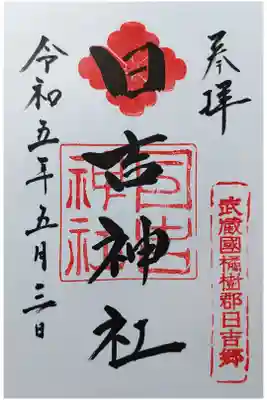 奉拝
武蔵國橘樹郡日吉郷
日吉神社
日吉
神社
令和五年五月三日